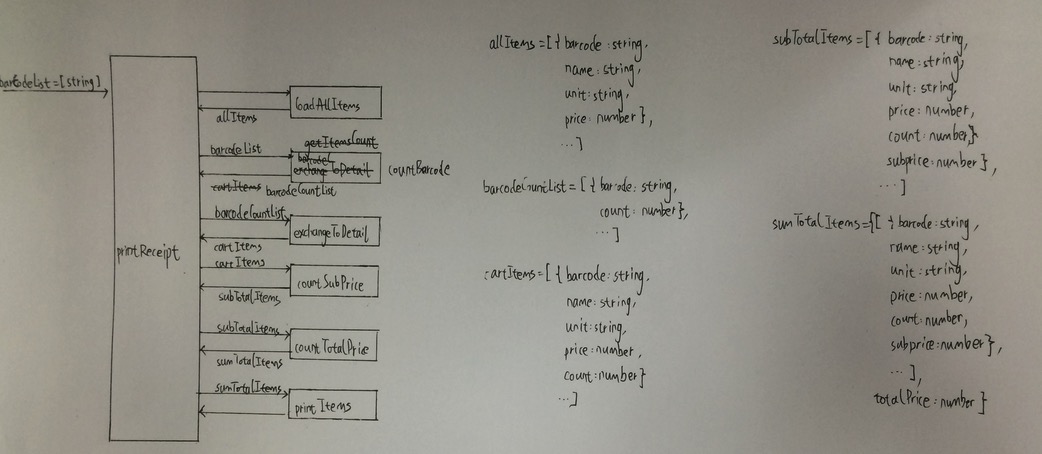 barCodeList=[string]
printReceipt
loadAllItems
allItems
getItemsCount
barcodeList
exchangeToDetail
countBarcode
cartItems barcodeCountList
barcodeCountList
exchangeToDetail
cartItems
cartItems
countSubPrice
subTotalItems
subTotalItems
countTotalPrice
sumTotalItems
sumTotalItems
printItems
allItems=[{barcode:string,
name:string,
unit:string,
price:number},
...]
barcodeCountList=[{barcode:string,
count:number},
...]
cartItems=[{barcode:string,
name:string,
unit:string,
price:number,
count:number}
...]
subTotalItems=[{barcode:string,
name:string,
unit:string,
price:number,
count:number,}
subprice:number},
...]
sumTotalItems={[{barcode:string,
name:string,
unit:string,
price:number,
count:number,
subprice:number},
...],
totalPrice:number}